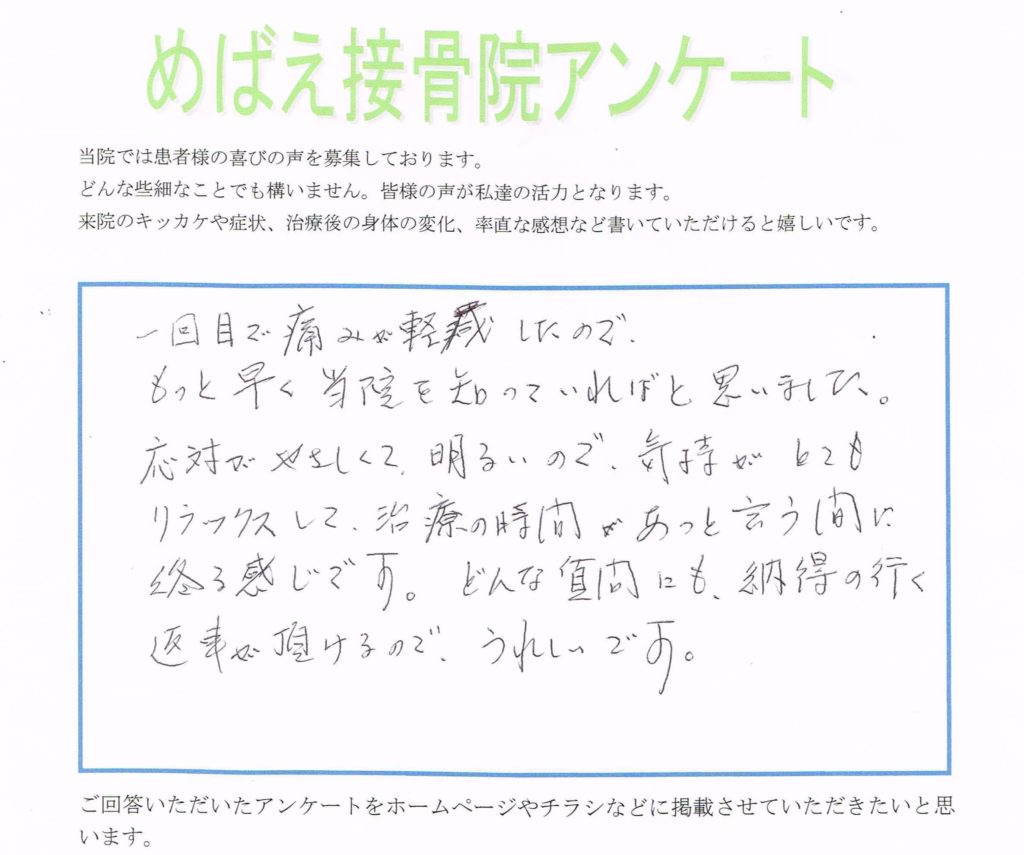 めばえ接骨院アンケート
当院では患者様の喜びの声を募集しております。
どんな些細なことでも構いません。皆様の声が私達の活力となります。
来院のキッカケや症状、治療後の身体の変化、率直な感想など書いていただけると嬉しいです。
一回目で痛みが軽減したので、
もっと早く当院を知っていればと思いました。
応対がやさしくて、明るいので、気持がとても
リラックスして、治療の時間があっと言う間に
終る感じです。どんな質問にも、納得の行く
返事が頂けるので、うれしいです。
ご回答いただいたアンケートをホームページやチラシなどに掲載させていただきたいと思
います。